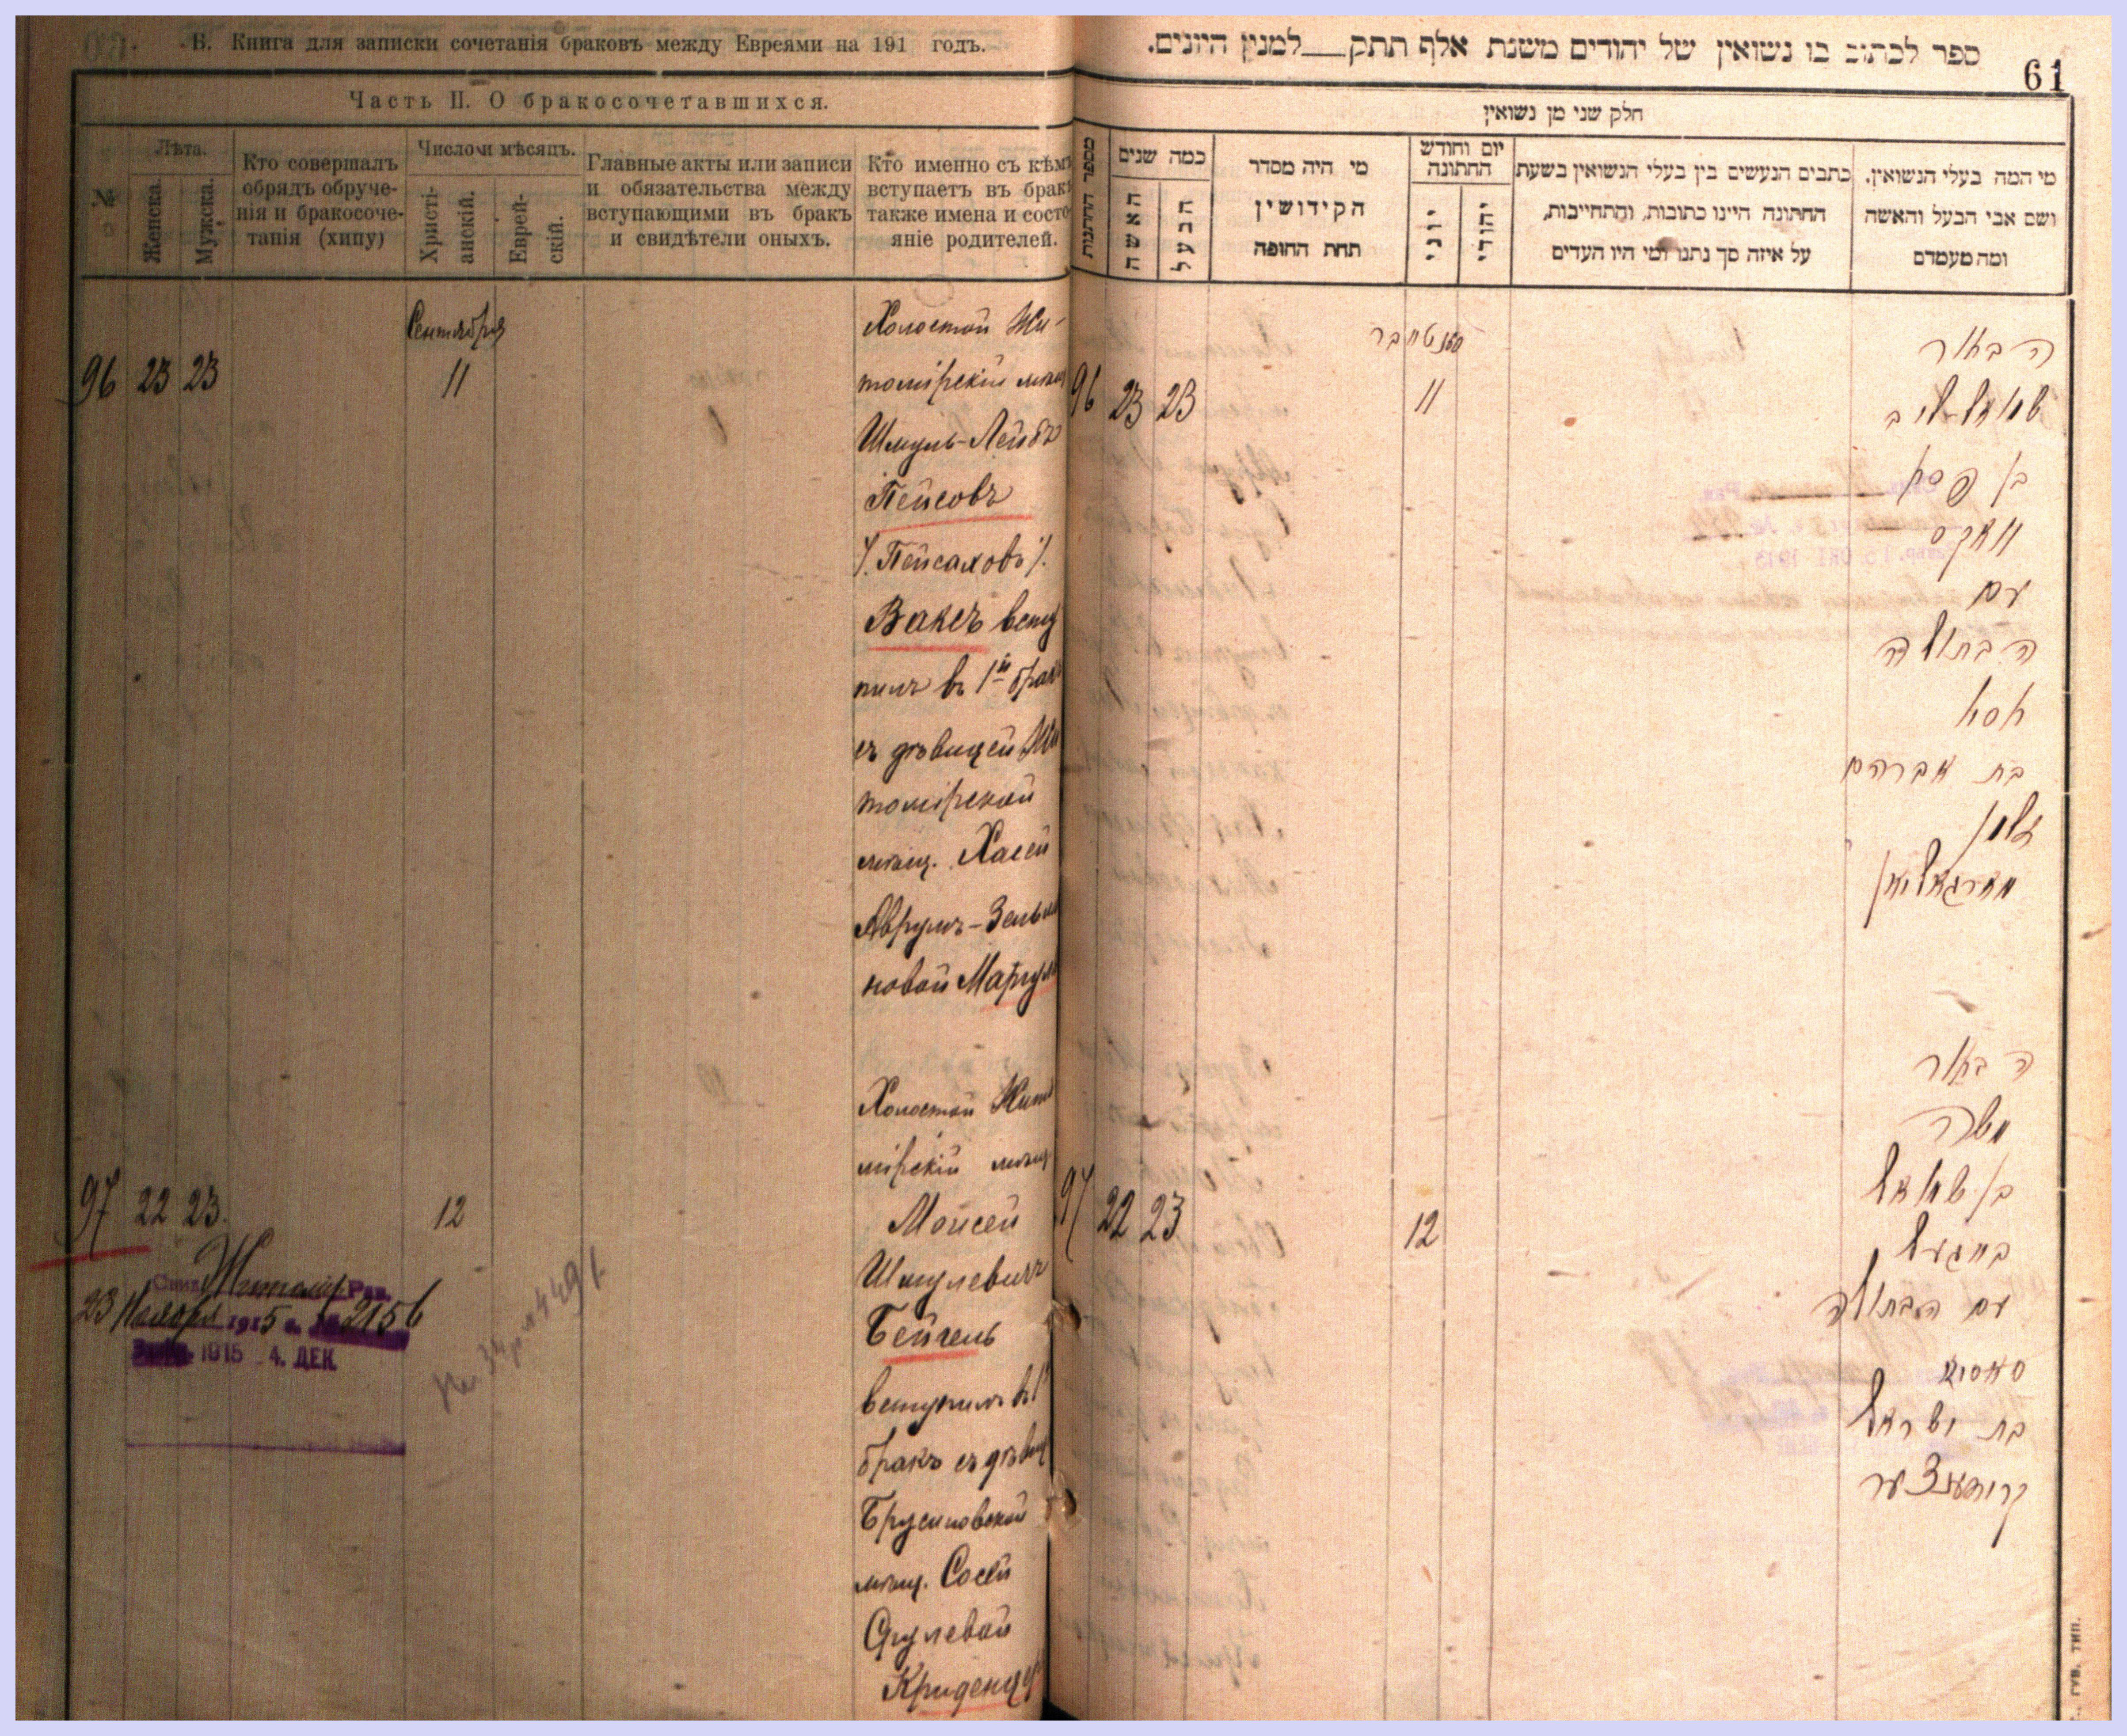 В. Книга для записки сочетанія браковъ между Евреями на 191 годъ.
Часть II. О бракосочетавшихся.
№
Лѣта.
Женска.
Мужска.
Кто совершалъ
обрядъ обруче-
нія и бракосоче-
танія (хипу)
Число и мѣсяцъ.
Христі-
анскій.
Еврей-
скій.
Главные акты или записи
и обязательства между
вступающими въ бракъ
и свидѣтели оныхъ.
Кто именно съ кѣмъ
вступаетъ въ бракъ
также имена и состо-
яніе родителей.
Сентября
96 23 23
11
Холостой Жи-
томірскій мѣщ
Шмуль-Лейбъ
Пейсовъ
/. Пейсаховъ /.
Ваксъ всту
пилъ въ 1й бракъ
съ дѣвицей Жи
томірской
мѣщ. Хасей
Аврумъ-Зельма
новой Маргул
97 22 23.
12
Холостой Жито
мірскій мѣщ
Моисей
Шмулевичъ
Бейгель
вступилъ въ 1
бракъ съ дѣвиц
Брусиловской
мѣщ. Сосей
Срулевой
Криденцер
Житомір. Рав.
23 Ноября 1915 г. № 2156
1915 4. ДЕК
ספר לכתוב בו נשואין של יהודים משנת אלף תתק___למנין היונים.
61
חלק שני מן נשואין
מספר החתונות
כמה שנים
האשה
הבעל
מי היה מסדר
הקידושין
תחת החופה
יום וחודש
החתונה
יוני
יהודי
כתבים הנעשים בין בעלי הנשואין בשעת
החתונה היינו כתובות, והתחייבות,
על איזה סך נתנו ומי היו העדים
מי המה בעלי הנשואין.
ושם אבי הבעל והאשה
ומה מעמדם
סענטיאבר
96 23 23
11
הבאור
שמואל ליב
בן פסי
וואקס
עם
הבתולה
חסי
בת אברהם
זלמן
מארגאליאן
97 22 23
12
הבאור
משה
בן שמואל
בייגעל
עם הבתולה
סאסיא
בת ישראל
קרידענצער
ГУБ. ТИП.